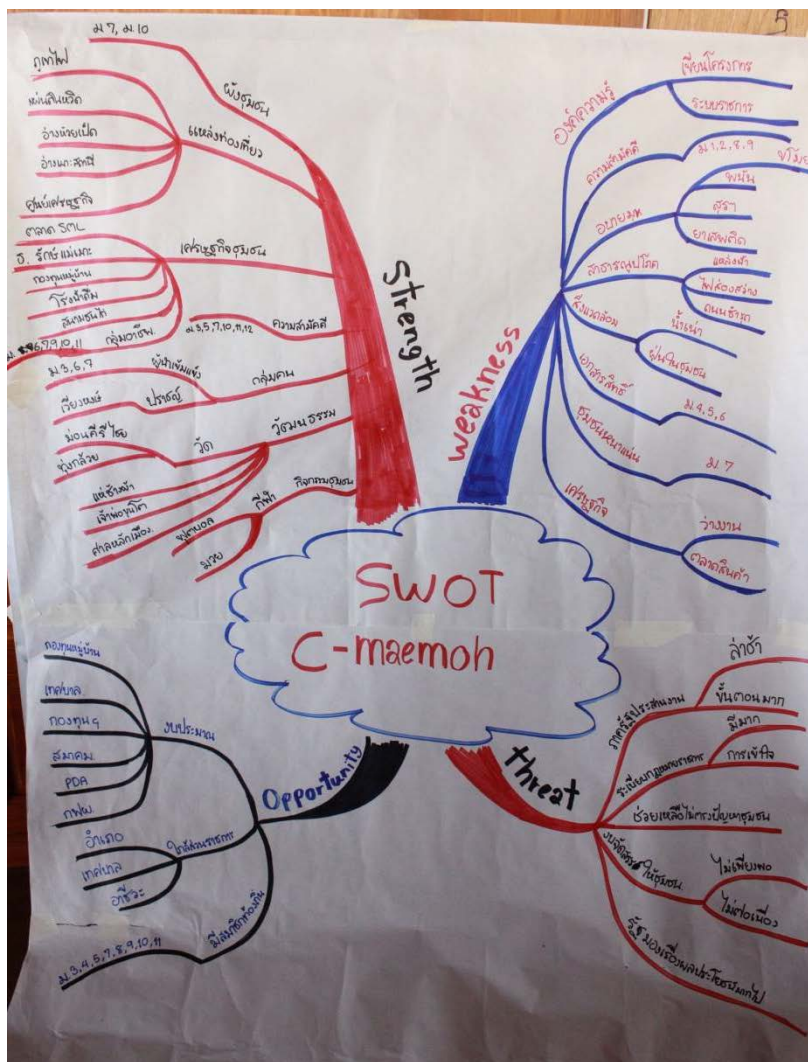 5
SWOT
C-maemoh
Strength
ผังชุมชน
ม.7, ม.10
แหล่งท่องเที่ยว
ภูเขาไฟ
อ่างห้วยเป็ด
ศูนย์เศรษฐกิจ
เศรษฐกิจชุมชน
ตลาด SML
ธ. รักษ์แม่เมาะ
กองทุนหมู่บ้าน
โรงน้ำดื่ม
กลุ่มอาชีพ
6,7,9,10,11
ความสามัคคี
ม.3,5,7,10,11,12
กลุ่มคน
ผู้นำเข้มแข็ง
ม.3,6,7
ปราชญ์
เวียงหงษ์
วัฒนธรรม
วัด
ม่อนคีรีไชย
ทุ่งกล้วย
แห่ช้างผ้า
ศาลหลักเมือง
กิจกรรมชุมชน
กีฬา
ฟุตบอล
มวย
weakness
องค์ความรู้
เขียนโครงการ
ระบบราชการ
ความสามัคคี
ม.1,2,8,9
อบายมุข
ขโมย
พนัน
สุรา
ยาเสพติด
สาธารณูปโภค
แหล่งน้ำ
ไฟส่องสว่าง
ถนนชำรุด
สิ่งแวดล้อม
น้ำเน่า
ฝุ่นในชุมชน
เอกสารสิทธิ์
ม.4,5,6
ชุมชนหนาแน่น
ม.7
เศรษฐกิจ
ว่างงาน
ตลาดสินค้า
Opportunity
งบประมาณ
กองทุนหมู่บ้าน
เทศบาล
กองทุนฯ
สมาคม
PDA
กฟผ
ใกล้ส่วนราชการ
อำเภอ
เทศบาล
อาชีวะ
มีสมาชิกท้องถิ่น
ม.3,4,5,7,8,9,10,11
threat
ภาครัฐประสานงาน
ล่าช้า
ขั้นตอนมาก
ระเบียบกฎหมายราชการ
มีมาก
การเข้าใจ
ช่วยเหลือไม่ตรงปัญหาชุมชน
งบจัดสรรให้ชุมชน
ไม่เพียงพอ
ไม่ต่อเนื่อง
รัฐมองเรื่องผลประโยชน์มากไป